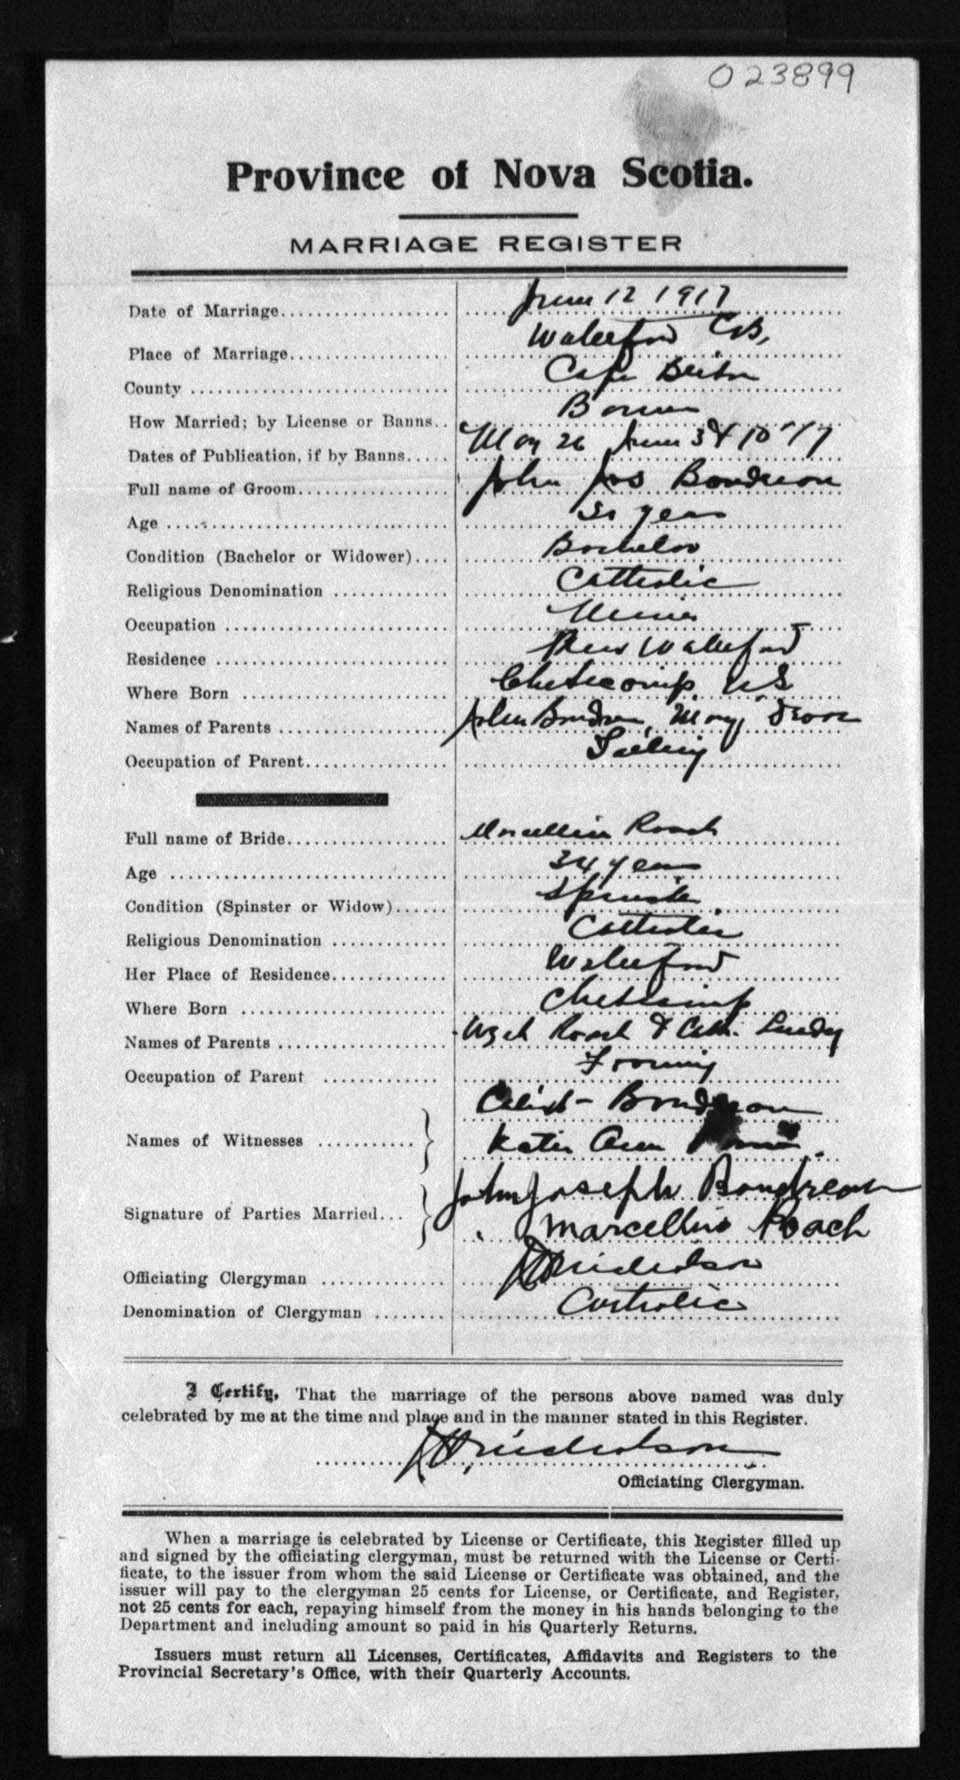 023899
Province of Nova Scotia.
MARRIAGE REGISTER
Date of Marriage June 12 1917
Place of Marriage Waterford C.B.
County Cape Breton
How Married; by License or Banns Banns
Dates of Publication, if by Banns May 26 June 3 & 10 '17
Full name of Groom John Jos Boudreau
Age years
Condition (Bachelor or Widower) Bachelor
Religious Denomination Catholic
Occupation Miner
Residence New Waterford
Where Born Cheticamp N.S
Names of Parents John Boudreau, Mary
Occupation of Parent
Full name of Bride Marcellin Roach
Age 24 years
Condition (Spinster or Widow) Spinster
Religious Denomination Catholic
Her Place of Residence Waterford
Where Born Cheticamp
Names of Parents Roach &
Occupation of Parent Farming
Names of Witnesses Boudreau
Katie Ann
Signature of Parties Married John Joseph Boudreau
Marcellin Roach
Officiating Clergyman Nicholson
Denomination of Clergyman Catholic
I Certify, That the marriage of the persons above named was duly
celebrated by me at the time and place and in the manner stated in this Register.
Nicholson
Officiating Clergyman.
When a marriage is celebrated by License or Certificate, this Register filled up
and signed by the officiating clergyman, must be returned with the License or Certi-
ficate, to the issuer from whom the said License or Certificate was obtained, and the
issuer will pay to the clergyman 25 cents for License, or Certificate, and Register,
not 25 cents for each, repaying himself from the money in his hands belonging to the
Department and including amount so paid in his Quarterly Returns.
Issuers must return all Licenses, Certificates, Affidavits and Registers to the
Provincial Secretary's Office, with their Quarterly Accounts.